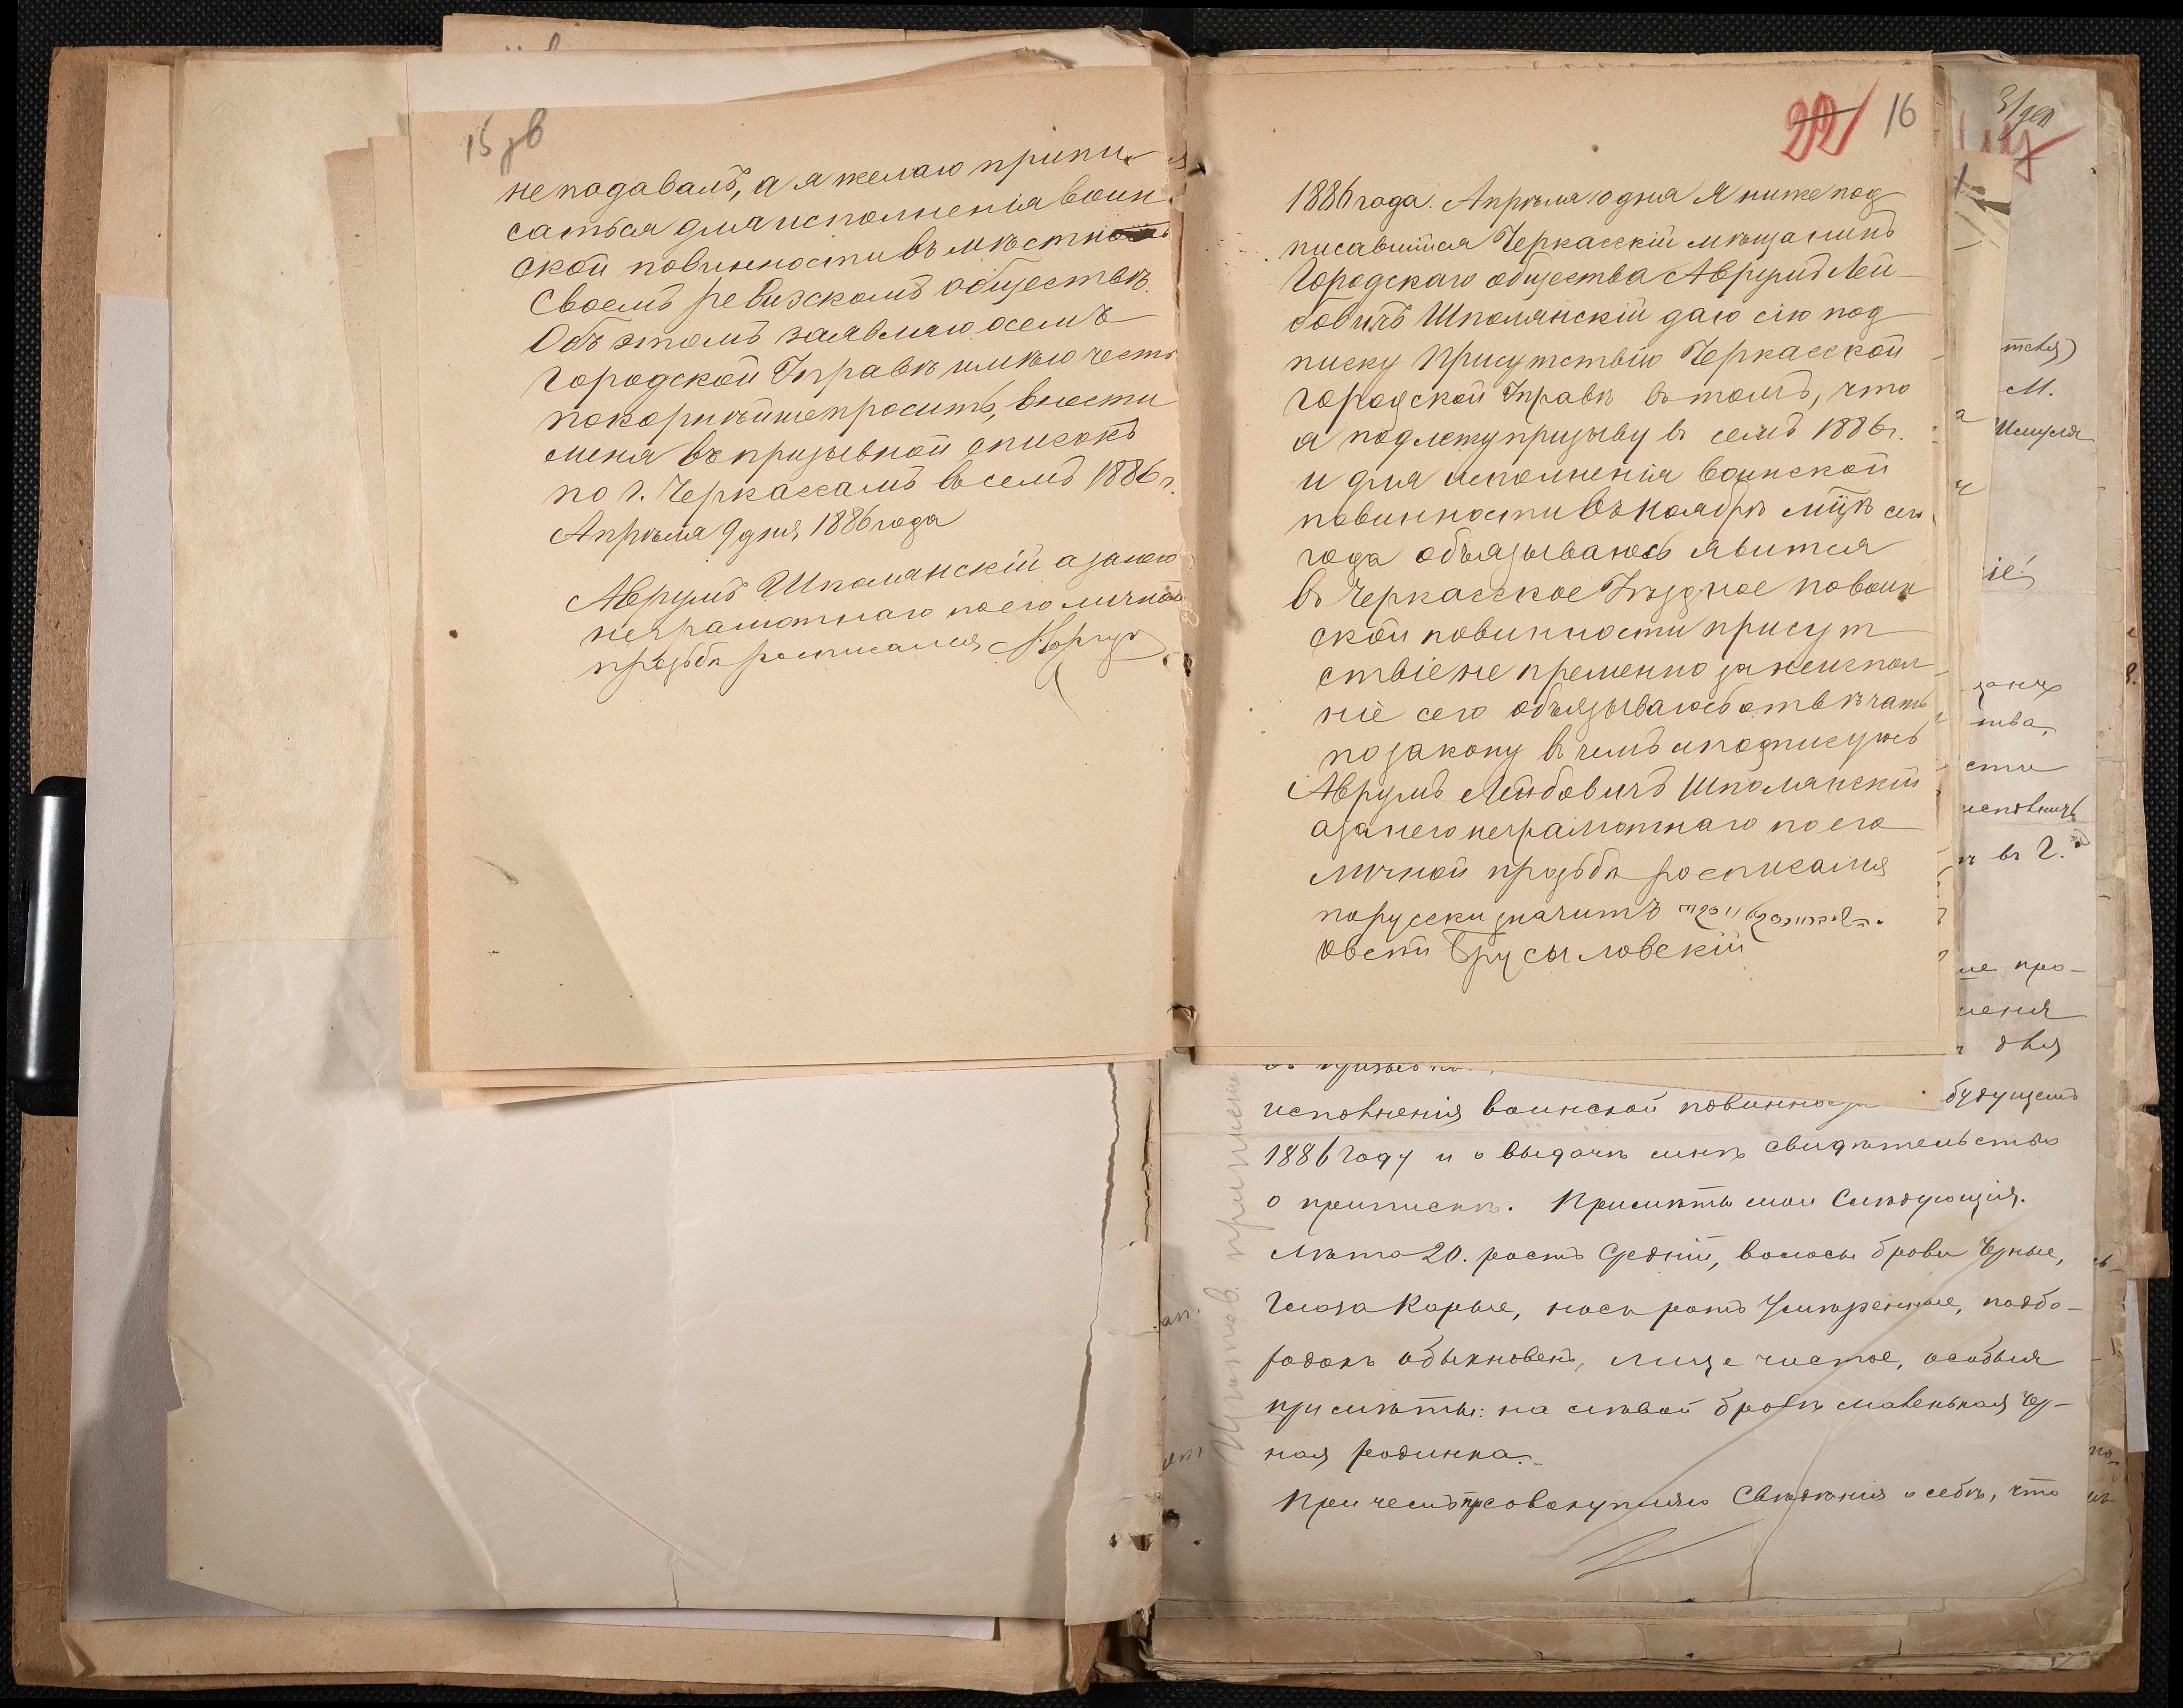 15 зв
не подавалъ, а я желаю припи
саться для исполненія воин
ской повинности въ
своемъ ревизскомъ обществѣ.
Объ этомъ заявляю осемъ
Городской Управѣ имѣю честь
покорнѣйше просить, внести
меня въ призывной списокъ
по г. Черкассамъ въ семъ 1886 г.
Апрѣля 9 дня 1886 года
Аврумъ Шполянскій а за него
неграмотнаго по его личной
прозьбѣ росписался
22 16
1886 года. Апрѣля 10 дня Я ниже под
писавшійся Черкасскій мѣщанинъ
Городскаго общества Аврумъ Лей
бовичъ Шполянскій даю сію под
писку Присутствію Черкасской
городской Управѣ въ томъ, что
я подлежу призыву въ семъ 1886 г.
и для исполненія воинской
повинности въ ноябрѣ м̃цѣ сего
года объязываюсь явится
въ Черкасское Уѣздное по воин
ской повинности присут
ствіе не пременно за неиспол
ніе сего объязываюсь отвѣчать
по закону въ чемъ и подписуюсь
Аврумъ Лейбовичъ Шполянскій
а за него неграмотнаго по его
личной прозьбѣ росписался
порусски значитъ
Овсей Брусыловскій
исполненія воинской повинности будущемъ
1886 году и о выдачѣ мнѣ свидѣтельства
о припискѣ. Примѣты мои Слѣдующія.
Лѣта 20. ростъ Средній, волосы брови Черные,
Глаза Карые, носъ ротъ Умѣренные, подбо-
родокъ обыкновенъ, лице чистое, особыя
примѣты: на лѣвой бровѣ маленькая Чер-
ная родинка.
При чемъ присовокупляю Свѣдѣнія о себѣ, что